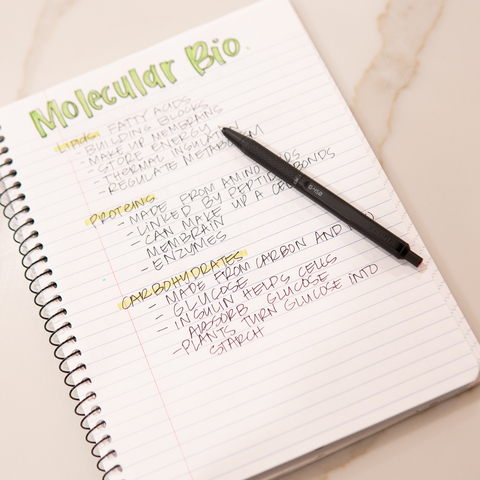 Molecular Bio
Lipids FATTY ACIDS
- BUILDING BLOCKS
- MAKE UP MEMBRAINS
- STORE ENERGY
- THERMAL INSULATION
- REGULATE METABOLISM
PROTEINS
- MADE FROM AMINO ACIDS
- LINKED BY PEPTIDE BONDS
- CAN MAKE UP A CELL
MEMBRAIN
- ENZYMES
CARBOHYDRATES
- MADE FROM CARBON AND
- GLUCOSE
- INSULIN HELPS CELLS
ABSORB GLUCOSE
- PLANTS TURN GLUCOSE INTO
STARCH